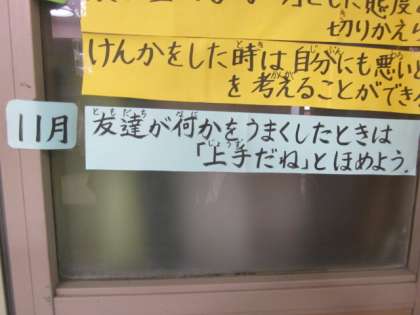 切りかえ
けんかをした時は自分にも悪い
を考えることができ
11月
友達が何かをうまくしたときは
「上手だね」とほめよう。